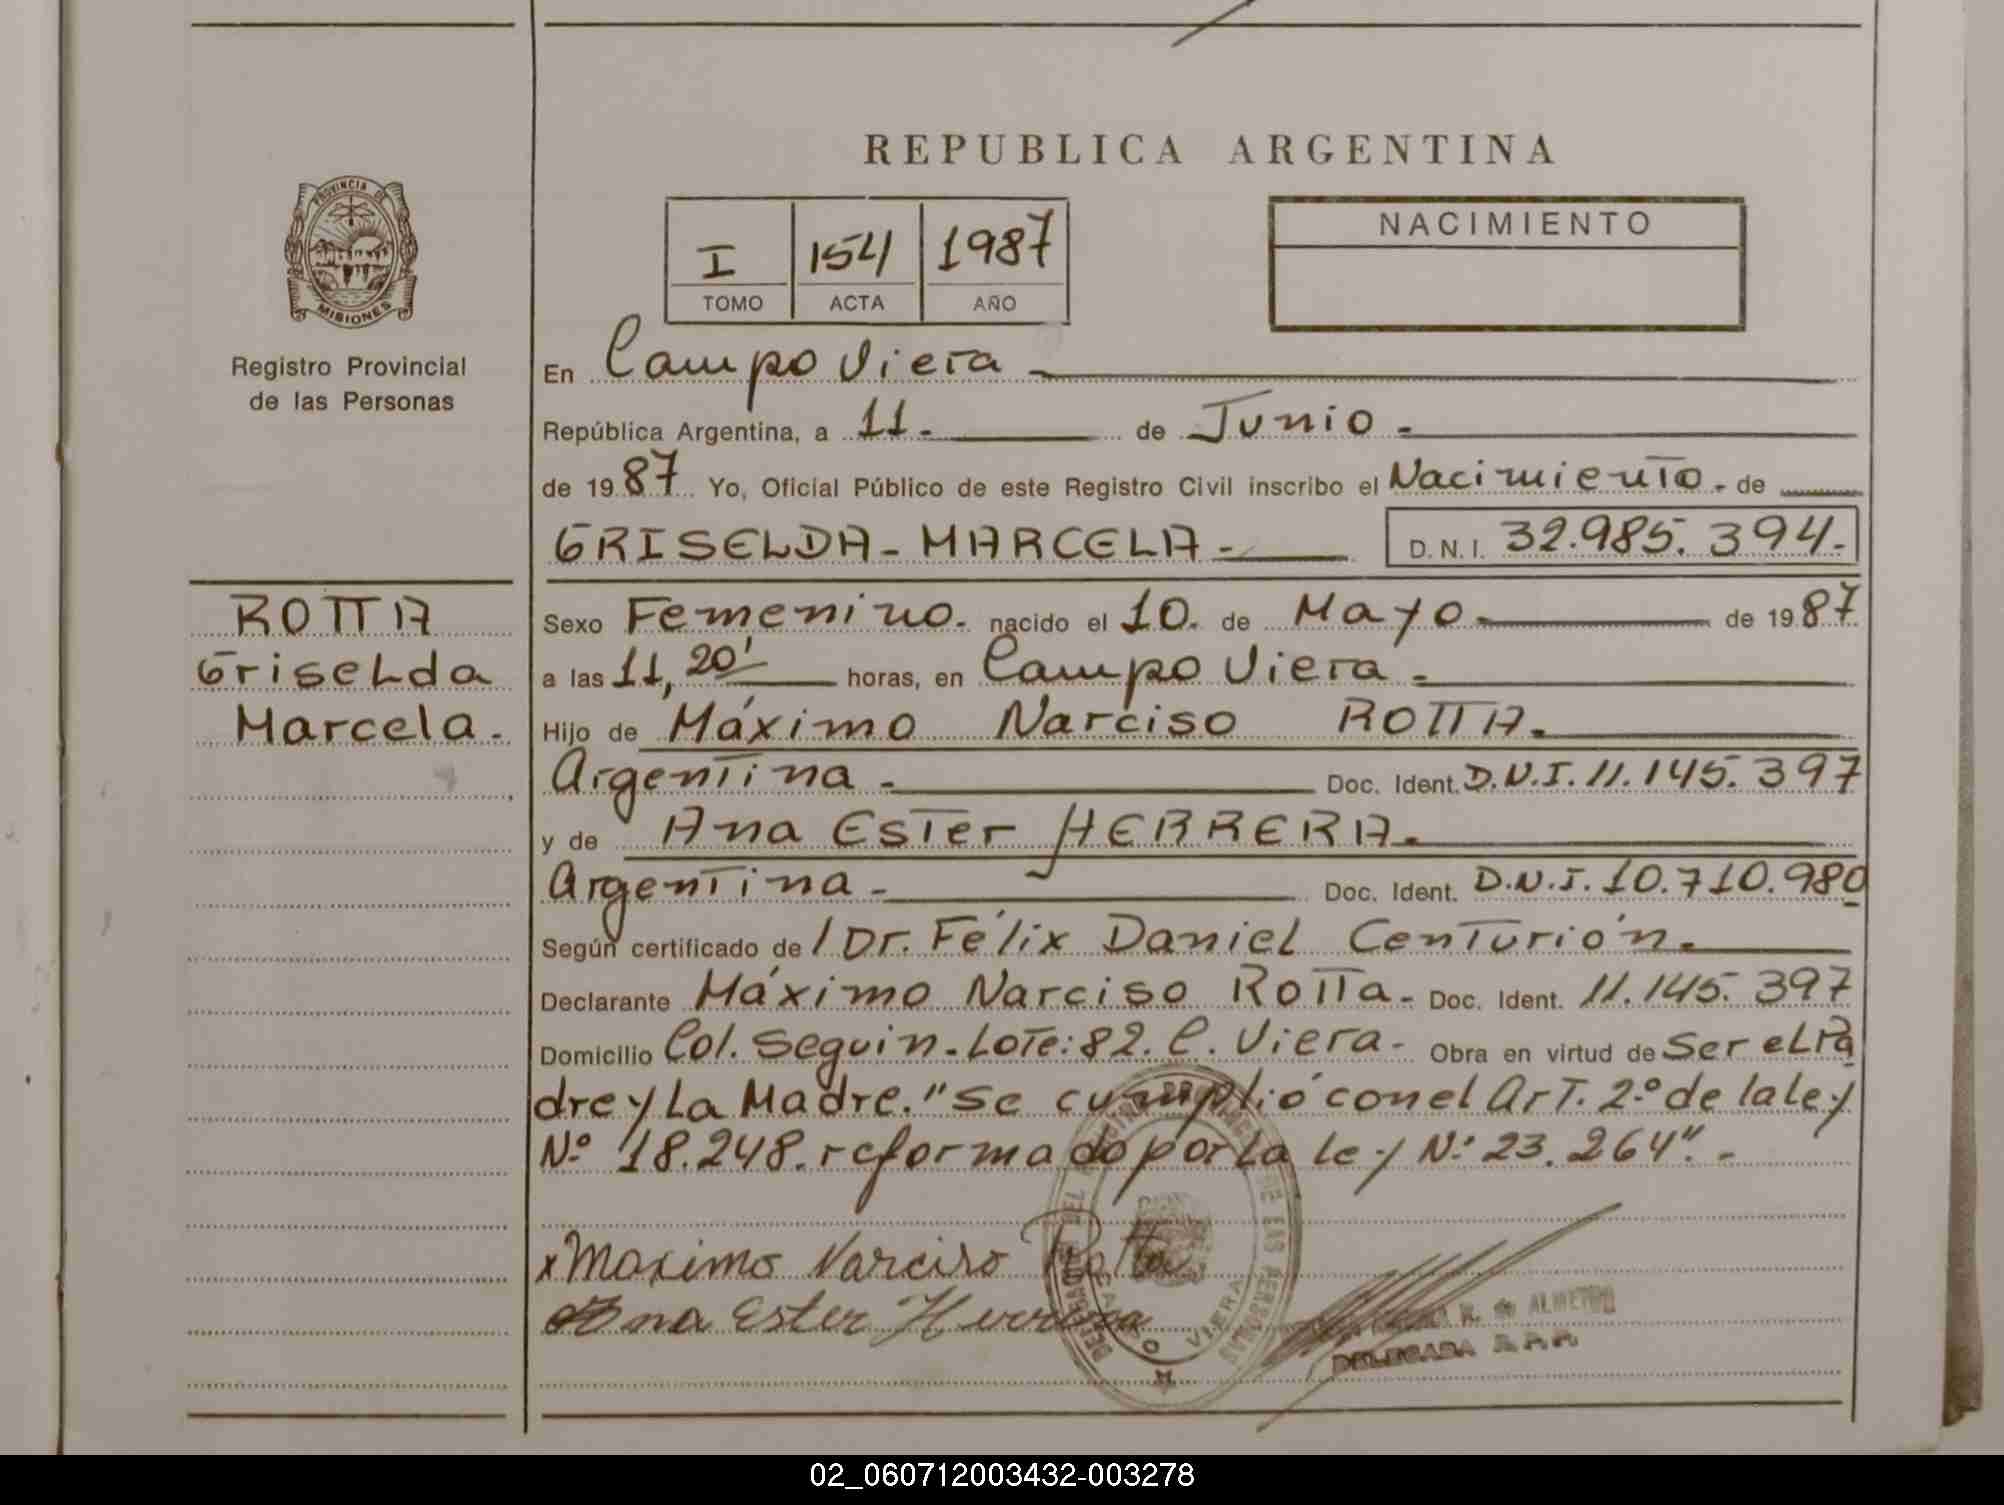 REPUBLICA ARGENTINA
PROVINCIA DE
MISIONES
Registro Provincial
de las Personas
I 154 1987
TOMO ACTA AÑO
NACIMIENTO
En Campo Viera -
República Argentina, a 11.- de Junio.-
de 1987 Yo, Oficial Público de este Registro Civil inscribo el Nacimiento. de
GRISELDA - MARCELA - D.N.I. 32.985.394.-
ROTTA
Griselda
Marcela.-
Sexo Femenino. nacido el 10. de Mayo. de 1987.
a las 11,20' horas, en Campo Viera.-
Hijo de Máximo Narciso ROTTA.
Argentina - Doc. Ident. D.N.I. 11.145.397
y de Ana Ester HERRERA.
Argentina - Doc. Ident. D.N.I. 10.710.980
Según certificado de / Dr. Félix Daniel Centurión.
Declarante Máximo Narciso Rotta - Doc. Ident. 11.145.397
Domicilio Col. Seguin - Lote: 82. C. Viera - Obra en virtud de ser el Pa
dre y La Madre. "Se cumplió con el Art. 2.º de la ley
Nº 18.248. reformado por la ley Nº 23.264".-
x Maximo Narciso Rotta
Ana Ester Herrera
VIERA
DE LAS PERSONAS
K. de ALMEIDA
DELEGADA R.P.P.
02_060712003432-003278